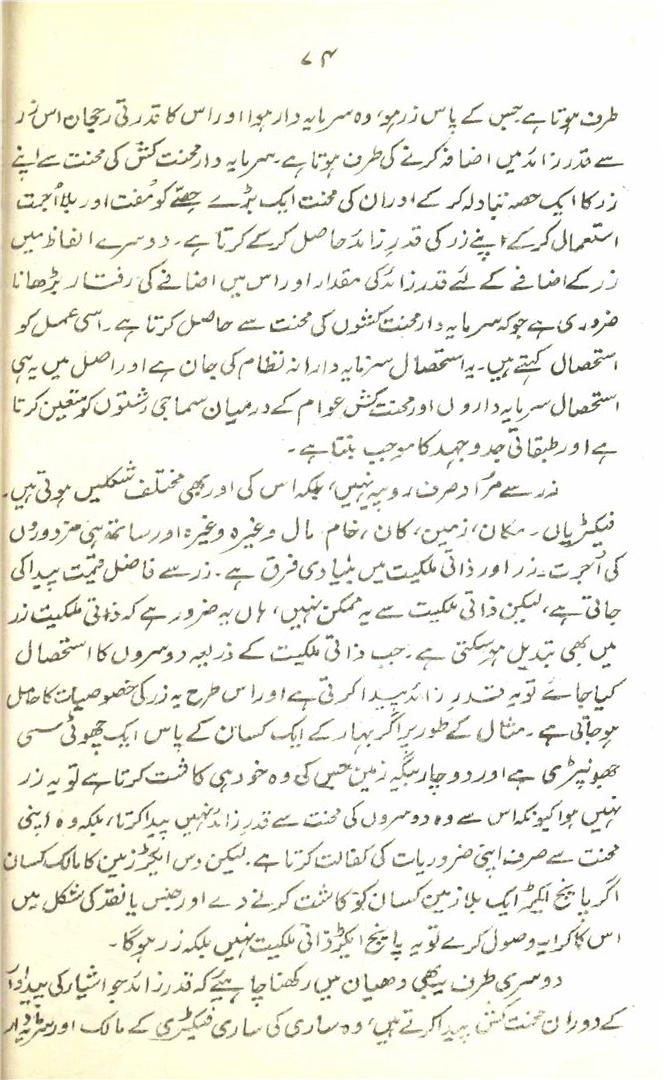 ۷۴
طرف ہوتا ہے جس کے پاس زر ہو، وہ سرمایہ دار ہوا اور اس کا قدرتی رجحان اس زر
سے قدر زائد میں اضافہ کرنے کی طرف ہوتا ہے۔ سرمایہ دار محنت کش کی محنت سے اپنے
زر کا ایک حصہ تبادلہ کر کے اور ان کی محنت ایک بڑے حصّے کو مُفت اور بلا اُجرت
استعمال کر کے اپنے زر کی قدرِ زائد حاصل کر کے کرتا ہے۔ دوسرے الفاظ میں
زر کے اضافے کے لئے قدر زائد کی مقدار اور اس میں اضافے کی رفتار بڑھانا
ضروری ہے جو کہ سرمایہ دار محنت کشوں کی محنت سے حاصل کرتا ہے۔ اسی عمل کو
استحصال کہتے ہیں۔ یہ استحصال سرمایہ دارانہ نظام کی جان ہے اور اصل میں یہی
استحصال سرمایہ داروں اور محنت کش عوام کے درمیان سماجی رشتوں کو متعین کرتا
ہے اور طبقاتی جدوجہد کا موجب بنتا ہے۔
زر سے مُراد صرف روپیہ نہیں، بلکہ اس کی اور بھی مختلف شکلیں ہوتی ہیں۔
فیکٹریاں۔ مکان، زمین، کان، خام مال وغیرہ وغیرہ اور ساتھ ہی مزدوروں
کی اُجرت۔ زر اور ذاتی ملکیت میں بنیادی فرق ہے۔ زر سے فاضل قیمت پیدا کی
جاتی ہے، لیکن ذاتی ملکیت سے یہ ممکن نہیں، ہاں یہ ضرور ہے کہ ذاتی ملکیت زر
میں بھی تبدیل ہو سکتی ہے۔ جب ذاتی ملکیت کے ذریعہ دوسروں کا استحصال
کیا جائے تو یہ قدرِ زائد پیدا کرتی ہے اور اس طرح یہ زر کی خصوصیات کا حامل
ہو جاتی ہے۔ مثال کے طور پر اگر بہار کے ایک کسان کے پاس ایک چھوٹی سی
جھونپڑی ہے اور دو چار بیگہ زمین جس کی وہ خود ہی کاشت کرتا ہے تو یہ زر
نہیں ہوا کیونکہ اس سے وہ دوسروں کی محنت سے قدرِ زائد نہیں پیدا کرتا، بلکہ وہ اپنی
محنت سے صرف اپنی ضروریات کی کفالت کرتا ہے۔ لیکن دس ایکڑ زمین کا مالک کسان
اگر پانچ ایکڑ ایک بلا زمین کسان کو کاشت کرنے دے اور جنس یا نقد کی شکل میں
اس کا کرایہ وصول کرے تو یہ پانچ ایکڑ ذاتی ملکیت نہیں بلکہ زر ہوگا۔
دوسری طرف یہ بھی دھیان میں رکھنا چاہیئے کہ قدر زائد جو اشیار کی پیداوار
کے دوران محنت کش پیدا کرتے ہیں، وہ ساری کی ساری فیکٹری کے مالک اور سرمایہ دار